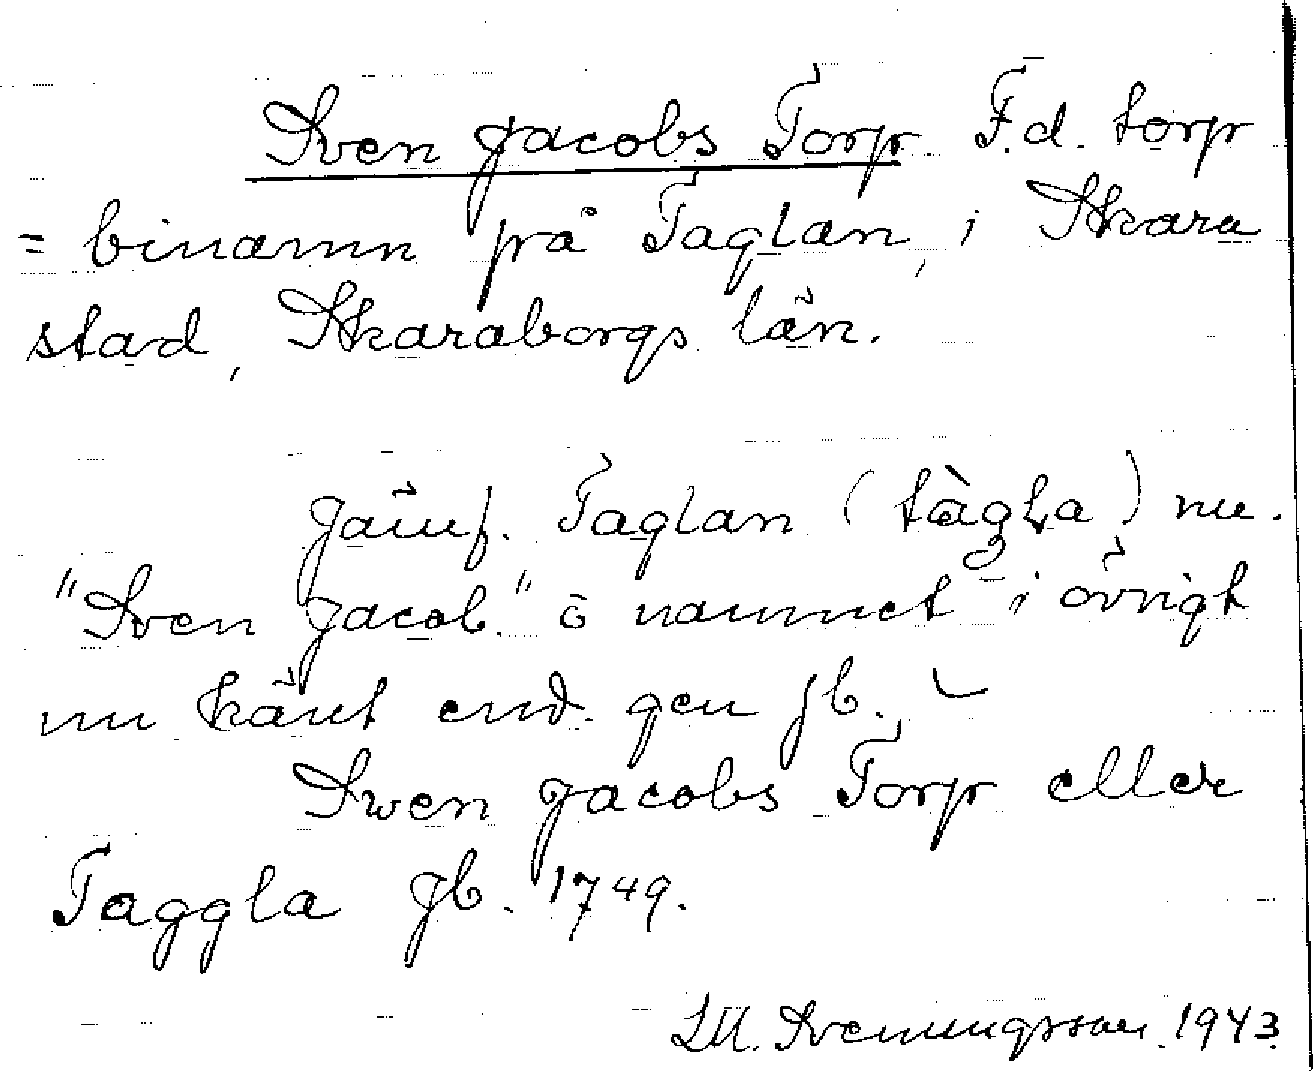 Sven Jacobs Torp. F.d. torp
= binamn på Taglan, i Skara
stad, Skaraborgs län.
Jämf. Taglan (tàgla) nu.
"Sven Jacob." o namnet i övrigt
nu känt end. gen jb.
Swen Jacobs Torp eller
Taggla Jb. 1749.
Sveningsson. 1943.